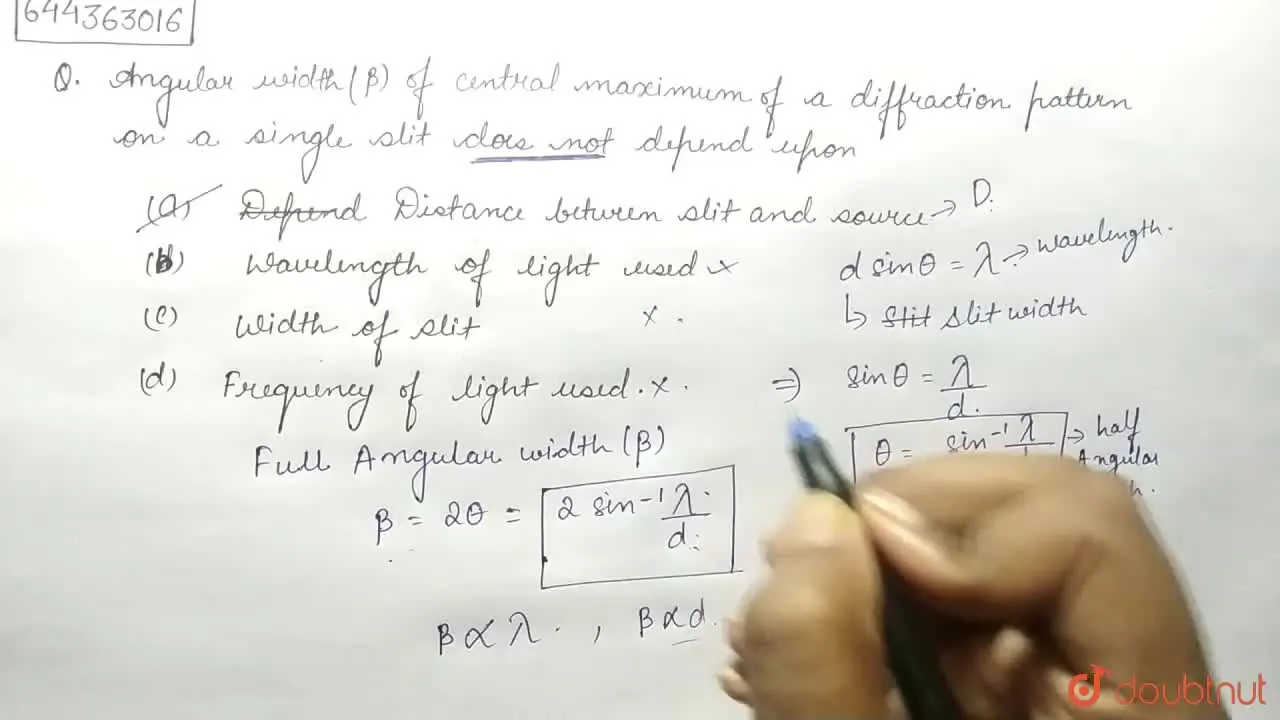 644363016
Q. Angular width (β) of central maximum of a diffraction pattern
on a single slit does not depend upon
(a) Depend Distance between slit and source → D.
(b) Wavelength of light used ×
(c) Width of slit ×.
(d) Frequency of light used. ×.
d sinθ = λ → wavelength.
↳ Slit Slit width
⇒ sinθ = λ/d.
θ = sin⁻¹ λ → half
Angular
Full Angular width (β)
β = 2θ = 2 sin⁻¹ λ/d.
β ∝ λ. , β ∝ d.
doubtnut